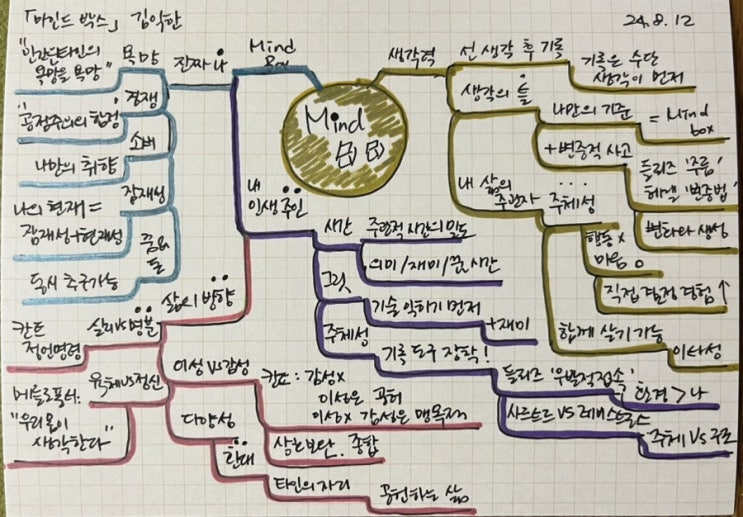 「마인드 박스」 김익한
24.8.12
Mind Box
Mind
진짜 나
욕망
"인간은 타인의
욕망을 욕망"
경쟁
"긍정주의의 함정"
소비
나만의 취향
잠재성
나의 현재 =
잠재성+현재성
꿈 & 돈
동시 추구 가능
생각력
선 생각 후 기록
기록은 수단
생각이 먼저
생각의 틀
나만의 기준
= Mind box
+ 변증적 사고
들뢰즈 '주름'
헤겔 '변증법'
변화와 생성
내 삶의
주관자
주체성
행동 X
마음 O
직접 결정 경험 ↑
함께 살기 가능
이타성
내
인생 주인
시간
주관적 시간의 밀도
의미/재미/꿈 시간
그릿
기술 익히기 먼저
+ 재미
주체성
기록 도구 장착!
들뢰즈 '우발적 접속'
환경 > 나
사르트르 VS 레비스트로스
주체 VS 구조
삶의 방향
실리 VS 명분
칸트
정언명령
육체 VS 정신
메를로퐁티:
"우리 몸이
생각한다"
이성 VS 감성
칸트 : 감성 X
이성은 공허
이성 X 감성은 맹목적
상호보완. 종합
다양성
환대
타인의 자리
공헌하는 삶